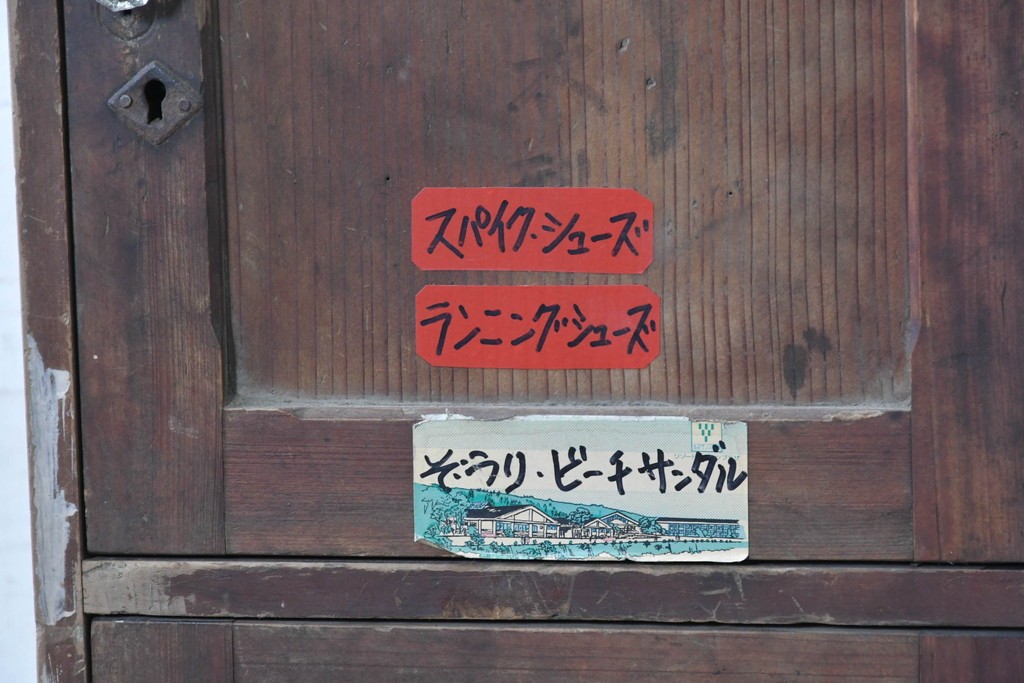 スパイク・シューズ
ランニングシューズ
ぞうり・ビーチサンダル